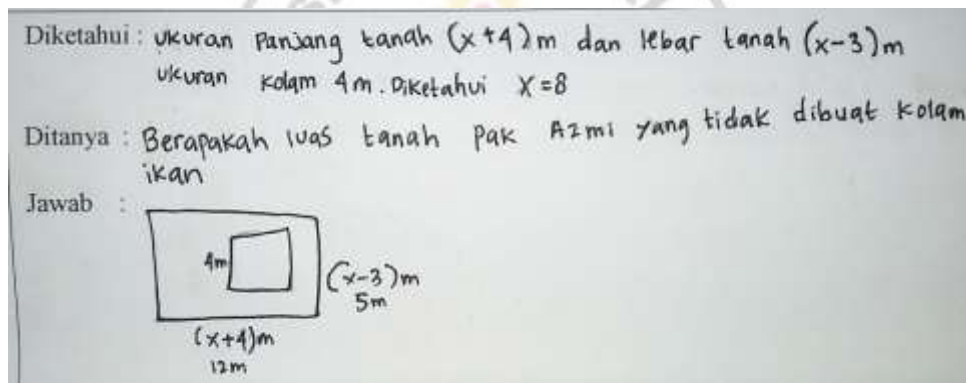 Diketahui : ukuran Panjang tanah (x+4)m dan lebar tanah (x-3)m
ukuran kolam 4m. Diketahui X=8
Ditanya : Berapakah luas tanah Pak Azmi yang tidak dibuat kolam
ikan
Jawab :
4m
(x-3)m
5m
(x+4)m
12m